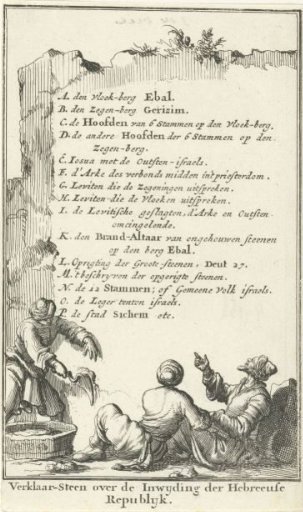 A. den Vloek-berg Ebal.
B. den Zegen-berg Gerizim.
C. de Hoofden van 6 Stammen op den Vloek-berg.
D. de andere Hoofden der 6 Stammen op den
Zegen-berg.
E. Iosua met de Outsten-israels.
F. d'Arke des verbonds midden int priesterdom.
G. Leviten die de Zegeningen uitspreken.
H. Leviten die de Vloeken uitspreken.
I. de Levitische geslagten, d'Arke en Outsten
omcingelende.
K. den Brand-Altaar van ongehouwen steenen
op den berg Ebal.
L. Oprigting der Groote-steenen. Deut 27.
M. 't beschryven der opgerigte steenen.
N. de 12 Stammen; of Gemeene Volk israels.
O. de Leger tenten israels.
P. de stad Sichem etc.
Verklaar-Steen over de Inwyding der Hebreeuse
Republyk.